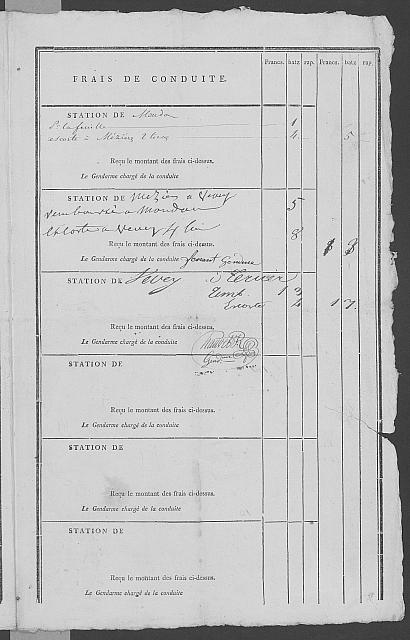 Francs. batz rap. Francs. batz rap.
FRAIS DE CONDUITE.
STATION DE Moudon
Pr la feuille 1
escorte à Mézières 2 lieues 4. 5
Reçu le montant des frais ci-dessus.
Le Gendarme chargé de la conduite
STATION DE Mézières a Vevey
Remboursé a Moudon 5
Escorte a Vevey 4 8
Reçu le montant des frais ci-dessus. 1 3
Le Gendarme chargé de la conduite
STATION DE Vevey à
Remb. 1 3
Escorte 4 1 7
Reçu le montant des frais ci-dessus.
Le Gendarme chargé de la conduite
STATION DE
Reçu le montant des frais ci-dessus.
Le Gendarme chargé de la conduite
STATION DE
Reçu le montant des frais ci-dessus.
Le Gendarme chargé de la conduite
STATION DE
Reçu le montant des frais ci-dessus.
Le Gendarme chargé de la conduite